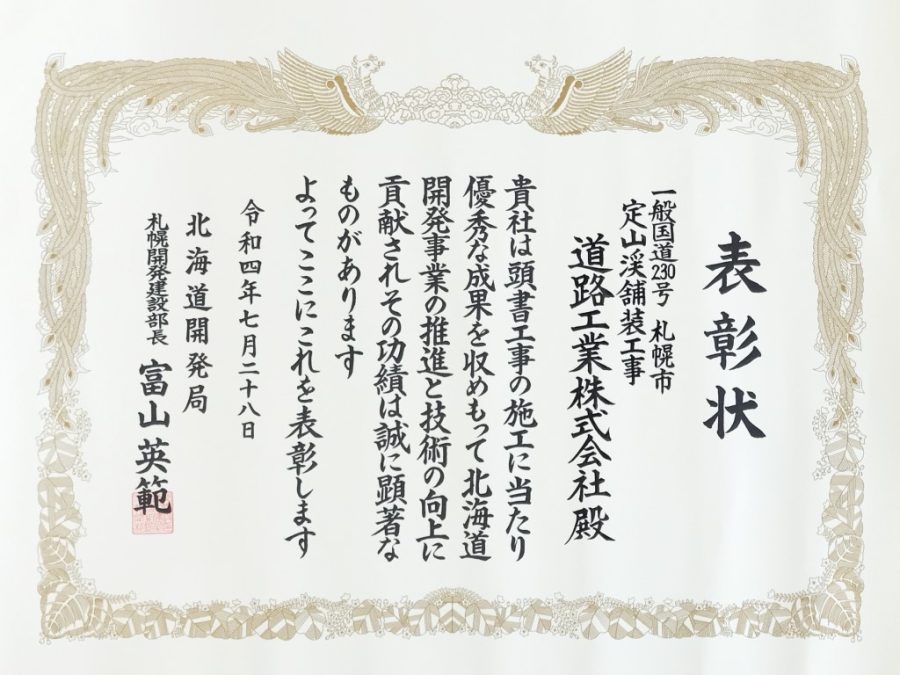 表彰状
一般国道230号 札幌市
定山渓舗装工事
道路工業株式会社殿
貴社は頭書工事の施工に当たり
優秀な成果を収めもって北海道
開発事業の推進と技術の向上に
貢献されその功績は誠に顕著な
ものがあります
よってここにこれを表彰します
令和四年七月二十八日
北海道開発局
札幌開発建設部長 富山英範